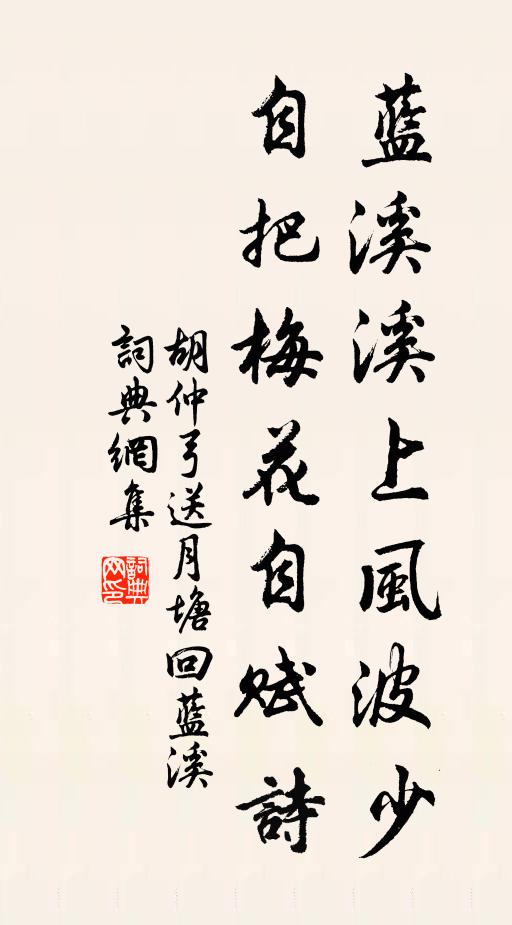 藍溪溪上風波少
自把梅花自賦詩
胡仲弓送月塘回藍溪
詞典網集
詞典網印